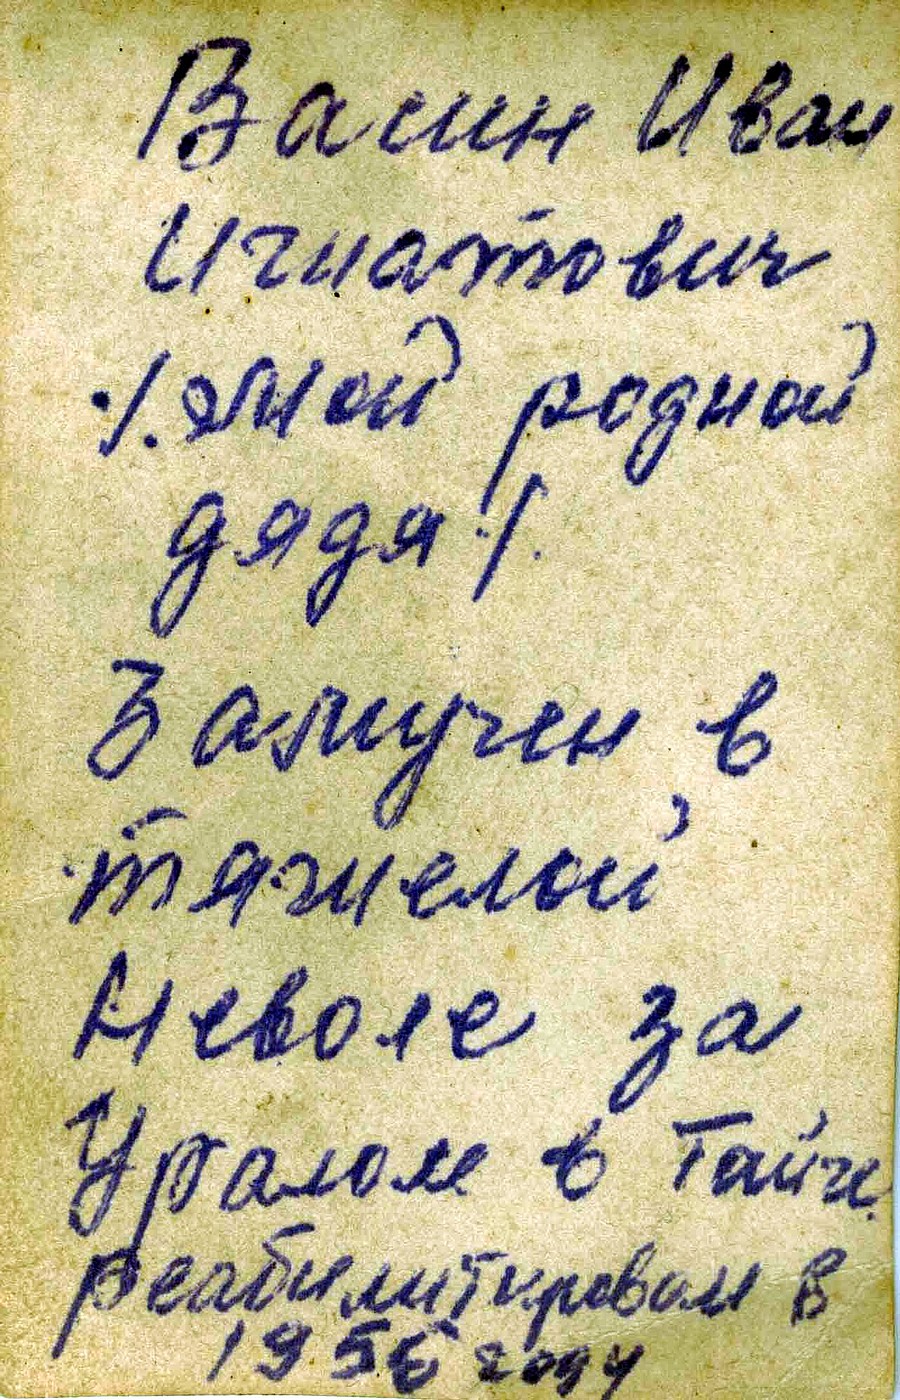 Васин Иван
Игнатович
·/. мой родной
дядя ·/.
Замучен в
тяжелой
неволе за
Уралом в Тайге
реабилитирован в
1956 году